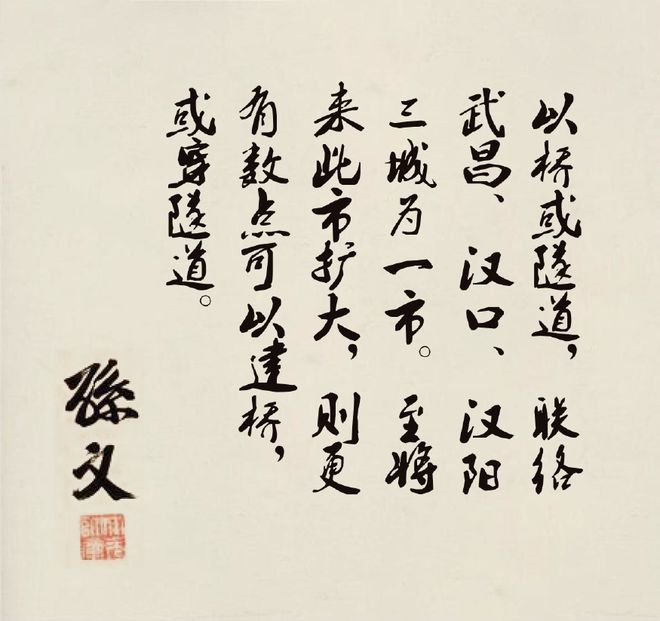 以桥或隧道，联络
武昌、汉口、汉阳
三城为一市。至将
来此市扩大，则更
有数点可以建桥，
或穿隧道。
孫文